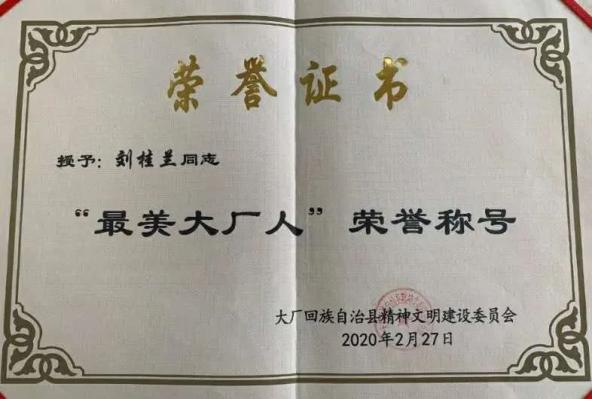 荣誉证书
授予：刘桂兰同志
“最美大厂人”荣誉称号
大厂回族自治县精神文明建设委员会
2020年2月27日